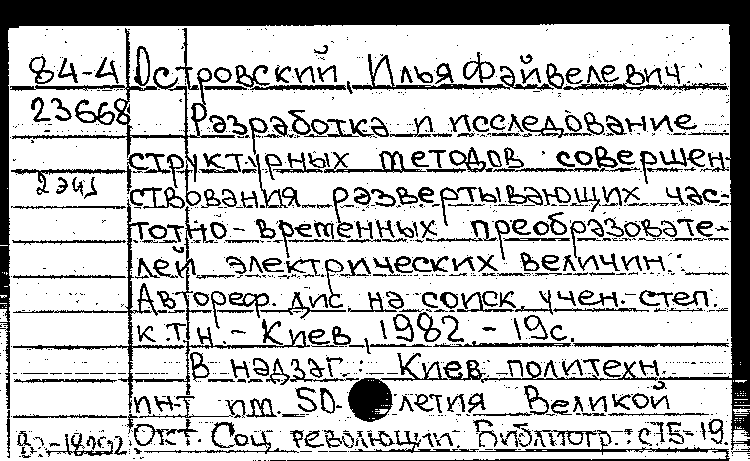 84-4 Островский, Илья Файвелевич
23668 Разработка и исследование
структурных методов совершен-
2 экз ствования развертывающих час-
тотно-временных преобразовате-
лей электрических величин:
Автореф. дис. на соиск. учен. степ.
к.т.н. - Киев, 1982. - 19с.
В надзаг.: Киев. политехн.
ин-т им. 50-летия Великой
Окт. Соц. революции. Библиогр.: с.15-19